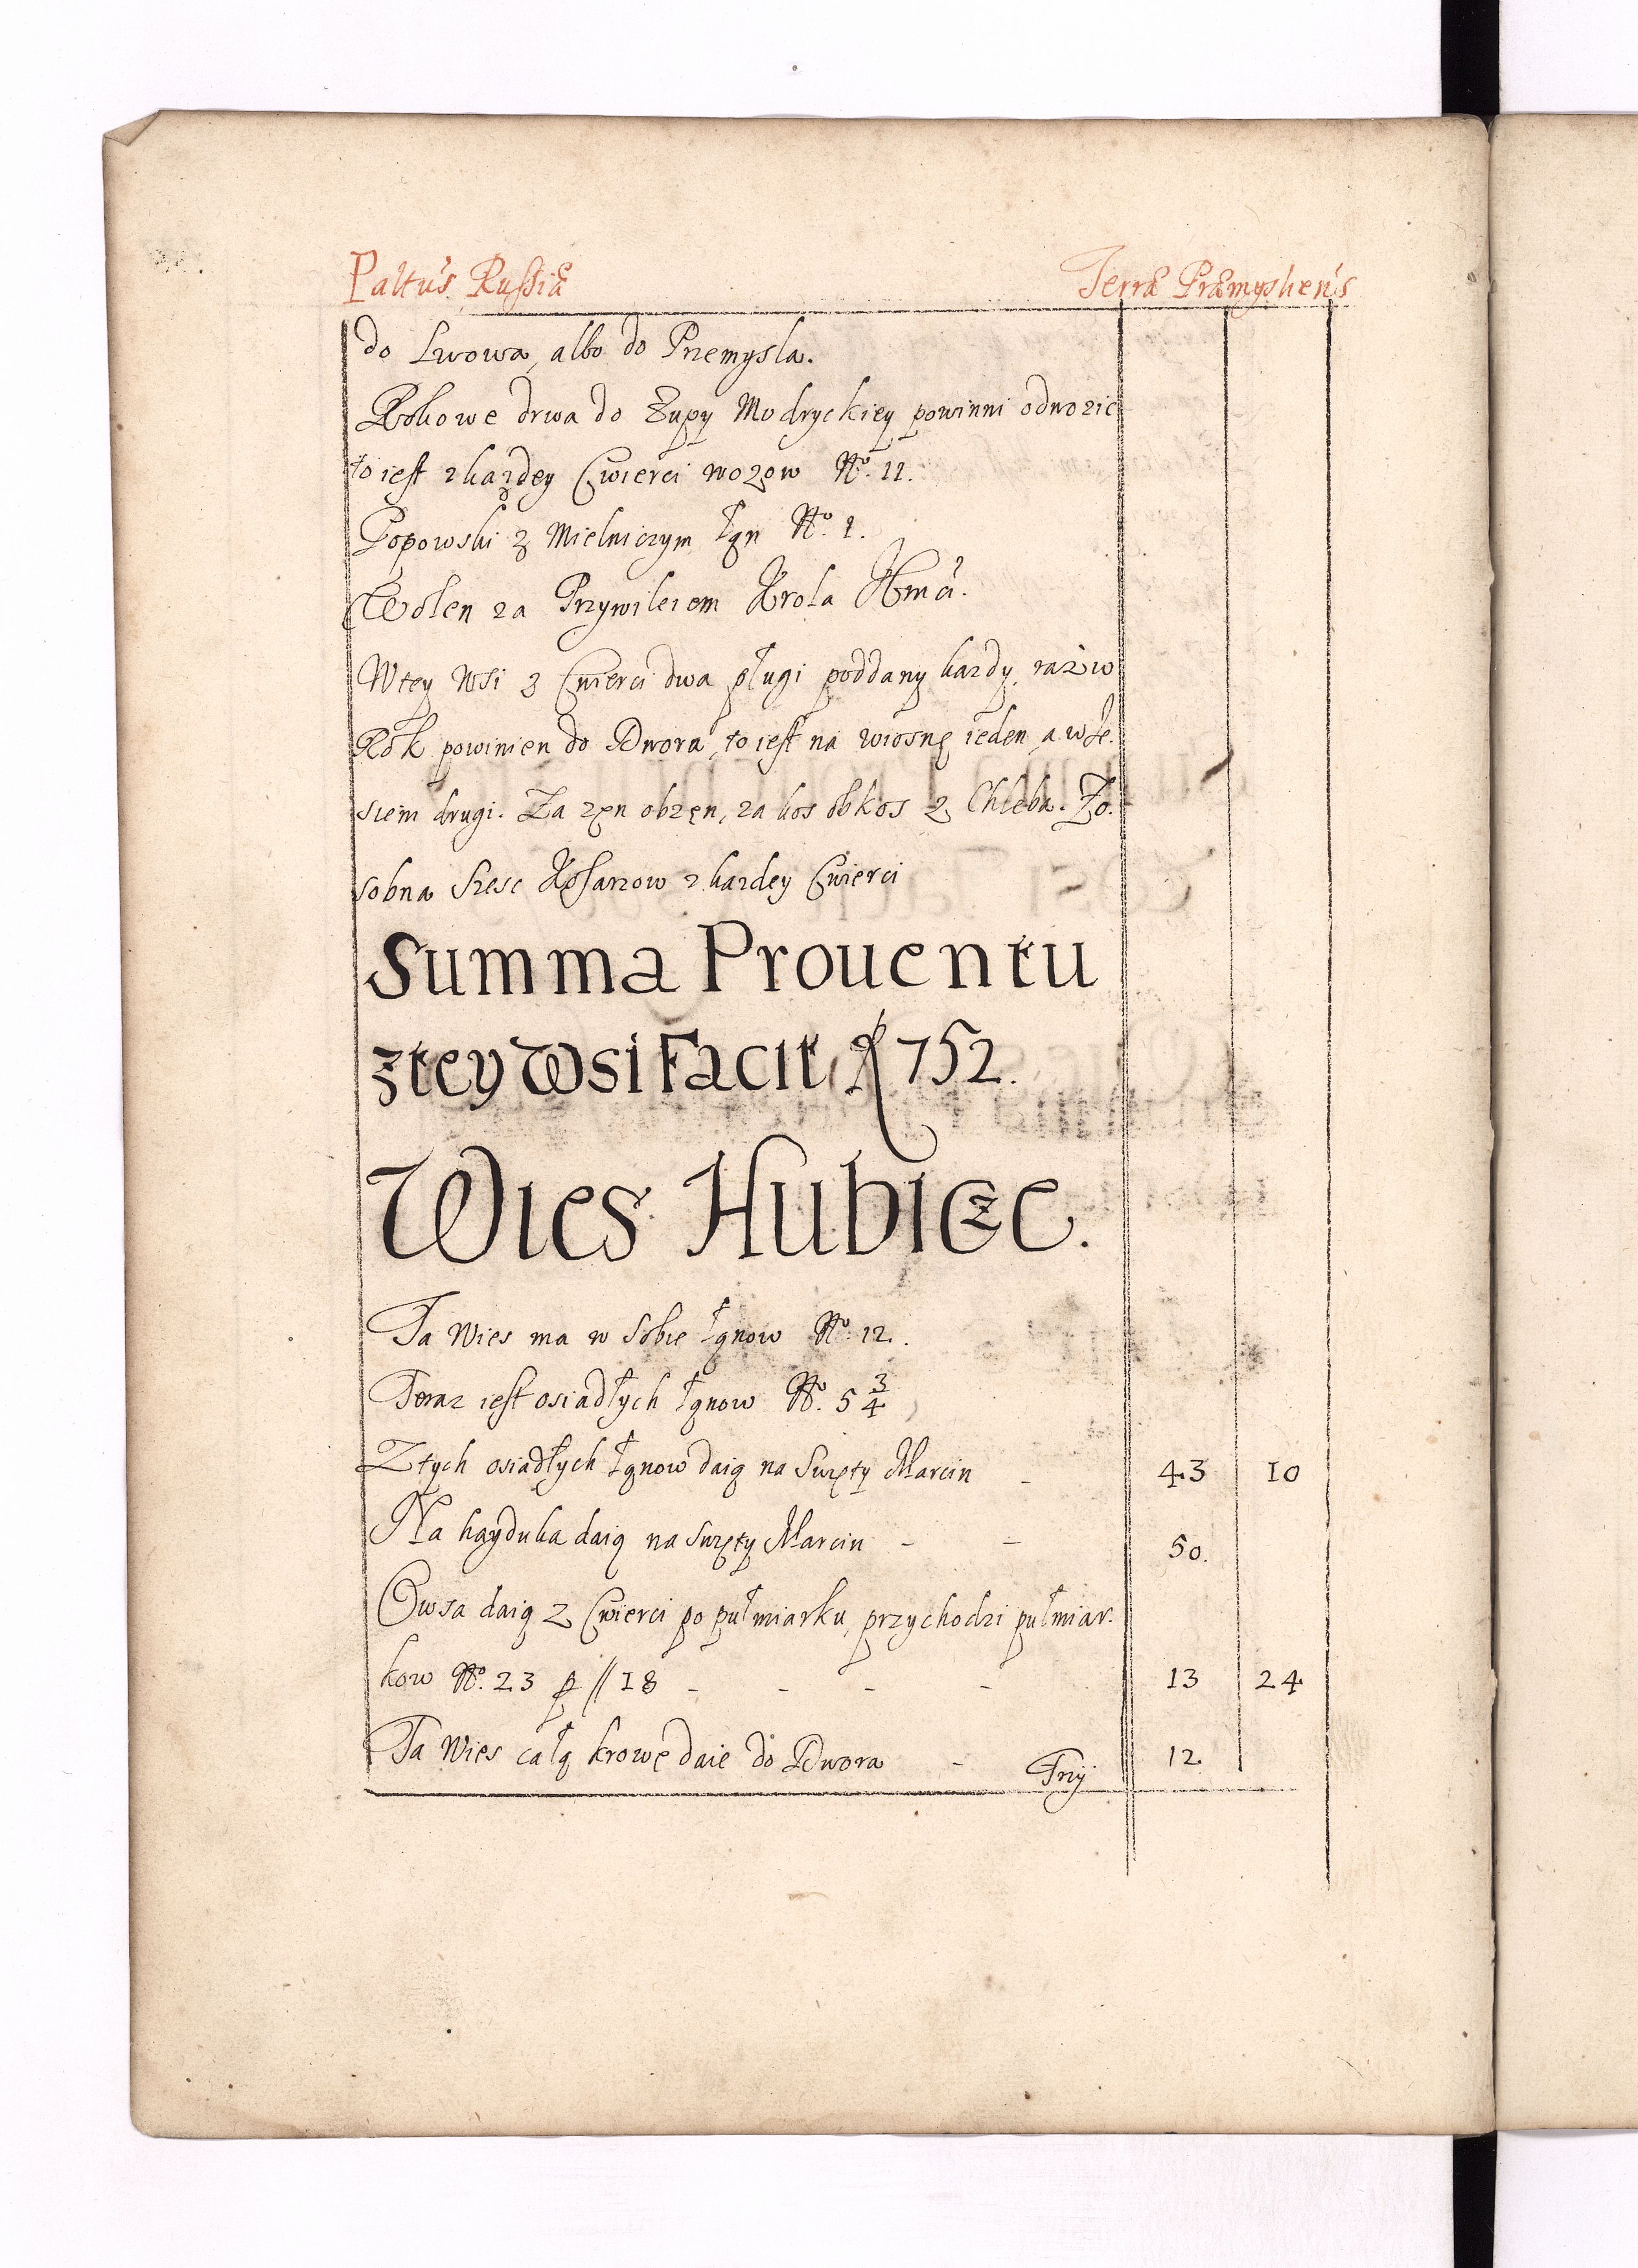 Paltus Russiæ Terræ Præmyslienˢ
do Lwowa, albo do Przemysla.
Robowe drwa do Zupy Modryckiey powinni odwozic
to iest z kazdey Cwierci wozow No. 11.
Popowski z Mielniczym łan No. 1.
Wolen za Przywileiem Krola JKmci.
W tey Wsi z Cwierci dwa pługi poddany kazdy, raz w
Rok powinien do Dwora, to iest na wiosnę ieden, a w Je-
sieni drugi. Za zęn obzęn, za kos obkos z Chleba. Zo-
sobna Szesc Kosarzow z kazdey Cwierci
Summa Prouentu
z tey Wsi Facit fl 752.
Wies Hubicze.
Ta Wies ma w sobie łanow No. 12.
Teraz iest osiadłych łanow No. 5 3/4
Z tych osiadłych łanow daią na Swięty Marcin - 43 10
Na hayduka daią na Swięty Marcin - - 50.
Owsa daią z Cwierci po pułmiarku, przychodzi pułmiar-
kow No. 23 p // 18 - - - - 13 24
Ta Wies całą krowę daie do Dwora - 12
Trzy